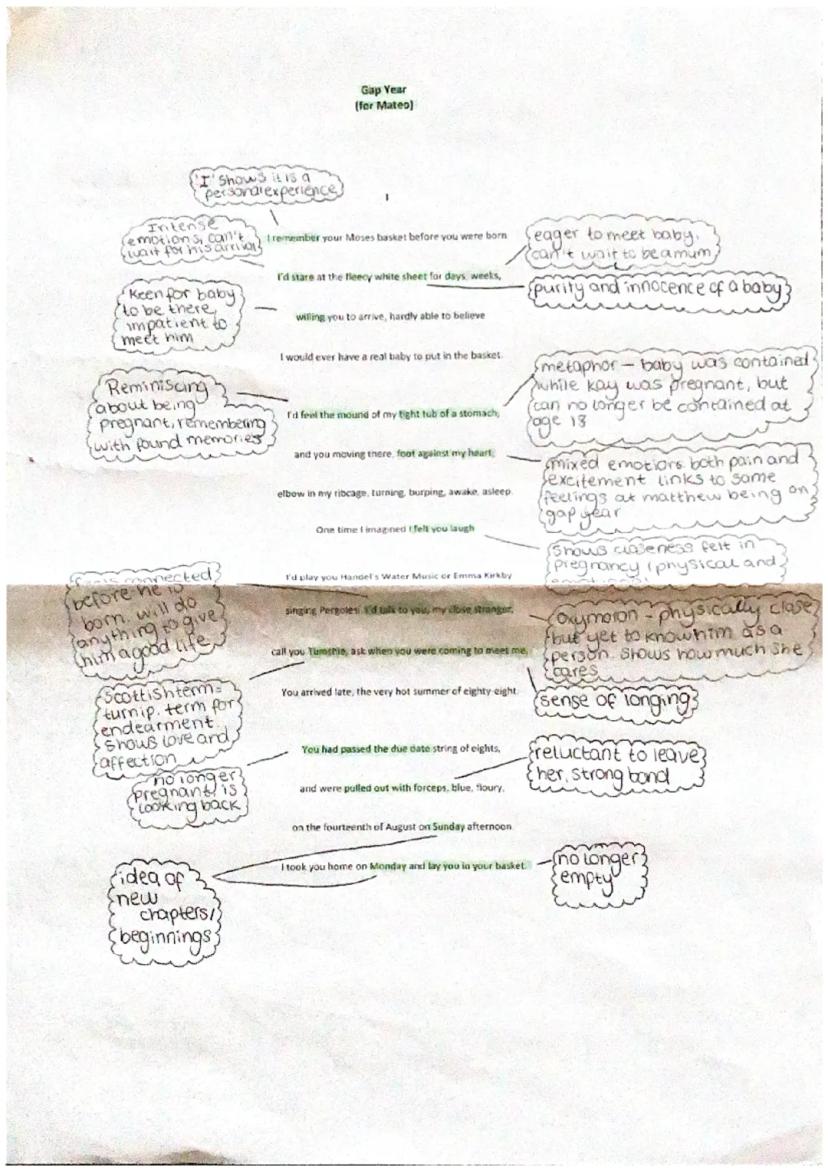 Gap Year
(for Mateo)
'I' shows it is a
personal experience
I
Intense
emotions, can't
wait for his arrival
I remember your Moses basket before you were born
eager to meet baby.
can't wait to be a mum
I'd stare at the fleecy white sheet for days, weeks,
purity and innocence of a baby
Keen for baby
to be there,
impatient to
meet him
willing you to arrive, hardly able to believe
I would ever have a real baby to put in the basket.
metaphor - baby was contained
while kay was pregnant, but
can no longer be contained at
age 18
Reminiscing
about being
pregnant, remembering
with found memories
I'd feel the mound of my tight tub of a stomach,
and you moving there, foot against my heart,
mixed emotions both pain and
excitement links to same
feelings at matthew being on
gap year
elbow in my ribcage, turning, burping, awake, asleep.
One time I imagined I felt you laugh
shows closeness felt in
pregnancy (physical and
connected
before he is
born. will do
anything to give
him a good life
I'd play you Handel's Water Music or Emma Kirkby
singing Pergolesi. I'd talk to you, my close stranger,
oxymoron - physically close
but yet to know him as a
person. Shows how much she
cares
call you Tumshie, ask when you were coming to meet me.
sense of longing
Scottish term =
turnip. term for
endearment.
shows love and
affection
You arrived late, the very hot summer of eighty-eight.
You had passed the due date string of eights,
reluctant to leave
her, strong bond
no longer
pregnant/is
looking back
and were pulled out with forceps, blue, floury,
on the fourteenth of August on Sunday afternoon.
I took you home on Monday and lay you in your basket.
no longer
empty
idea of
new
chapters/
beginnings